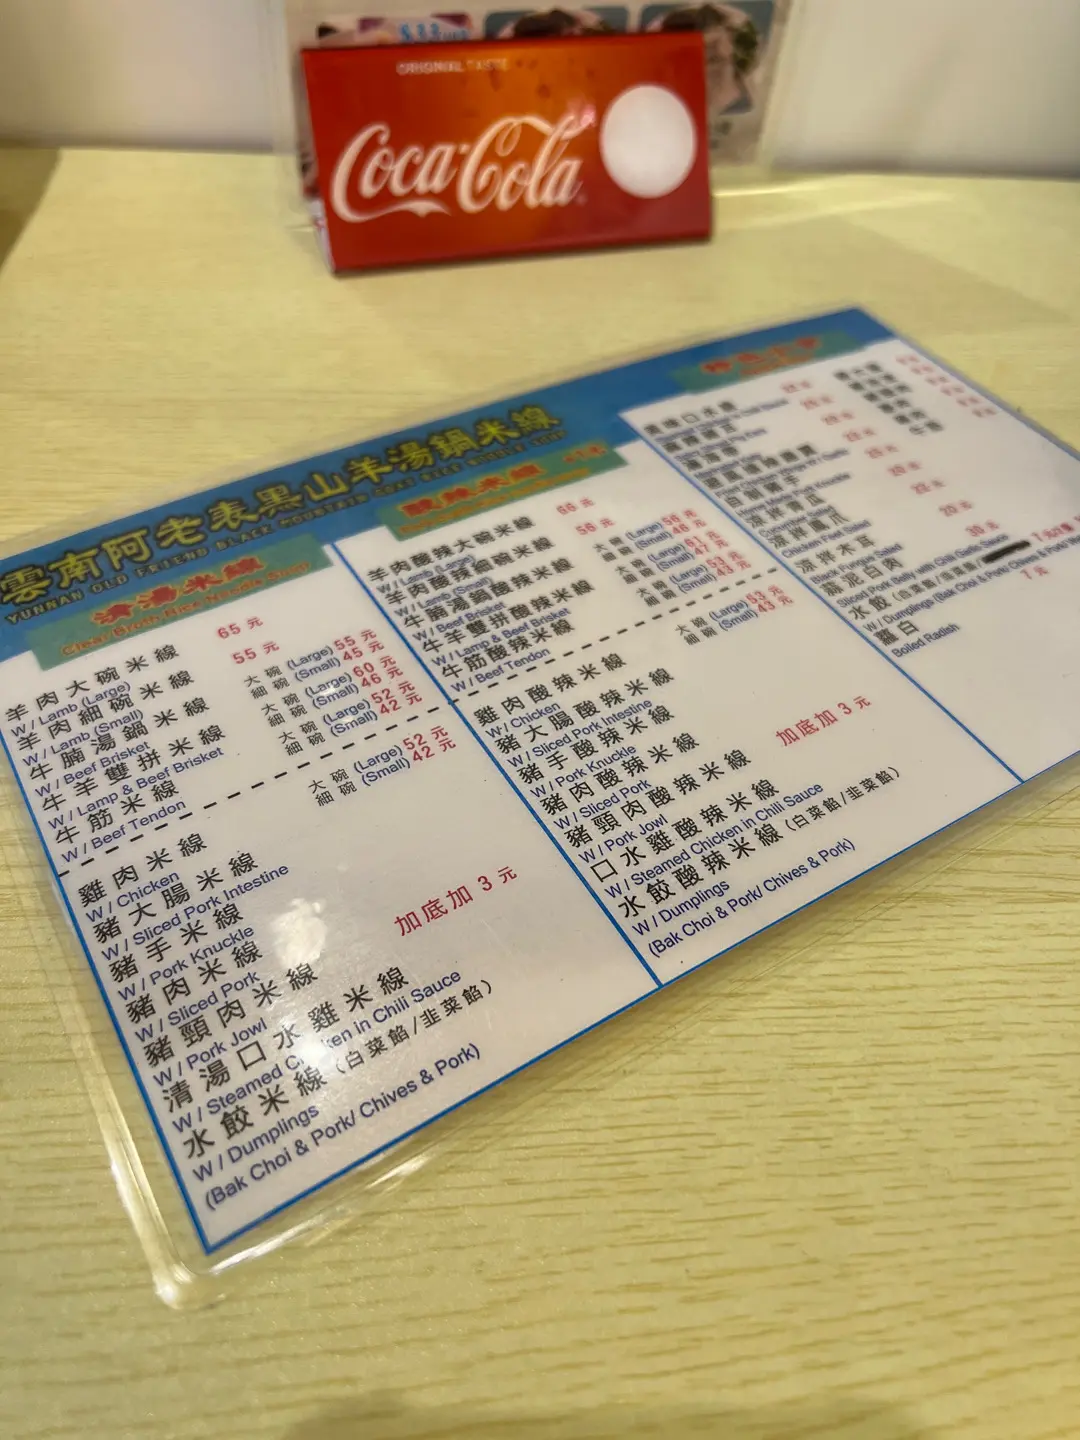 ORIGINAL TASTE
Coca-Cola
雲南阿老表黑山羊湯鍋米線
YUNNAN OLD FRIEND BLACK MOUNTAIN GOAT RICE NOODLE SOUP
清湯米線
Clear Broth Rice Noodle Soup
羊肉大碗米線 65 元
W / Lamb (Large)
羊肉細碗米線 55 元
W / Lamb (Small)
牛腩湯鍋米線 大碗 (Large) 55 元
W / Beef Brisket 細碗 (Small) 45 元
牛羊雙拼米線 大碗 (Large) 60 元
W / Lamp & Beef Brisket 細碗 (Small) 46 元
牛筋米線 大碗 (Large) 52 元
W / Beef Tendon 細碗 (Small) 42 元
大碗 (Large) 52 元
細碗 (Small) 42 元
雞肉米線
W / Chicken
豬大腸米線
W / Sliced Pork Intestine
豬手米線
W / Pork Knuckle
豬肉米線
W / Sliced Pork
豬頸肉米線
W / Pork Jowl
清湯口水雞米線
W / Steamed Chicken in Chili Sauce
水餃米線 (白菜餡/韭菜餡)
W / Dumplings
(Bak Choi & Pork/ Chives & Pork)
加底加 3 元
酸辣米線
羊肉酸辣大碗米線 66 元
W / Lamb (Large)
羊肉酸辣細碗米線 56 元
W / Lamb (Small)
牛腩湯鍋酸辣米線 大碗 (Large) 56 元
W / Beef Brisket 細碗 (Small) 46 元
牛羊雙拼酸辣米線 大碗 (Large) 61 元
W / Lamp & Beef Brisket 細碗 (Small) 47 元
牛筋酸辣米線 大碗 (Large) 53 元
W / Beef Tendon 細碗 (Small) 43 元
大碗 (Large) 53 元
細碗 (Small) 43 元
雞肉酸辣米線
W / Chicken
豬大腸酸辣米線
W / Sliced Pork Intestine
豬手酸辣米線
W / Pork Knuckle
豬肉酸辣米線
W / Sliced Pork
豬頸肉酸辣米線
W / Pork Jowl
口水雞酸辣米線
W / Steamed Chicken in Chili Sauce
水餃酸辣米線 (白菜餡/韭菜餡)
W / Dumplings
(Bak Choi & Pork/ Chives & Pork)
加底加 3 元
涼拌青瓜
Cucumber Salad
涼拌鳳爪
Chicken Feet Salad
涼拌木耳
Black Fungus Salad
蒜泥白肉 30 元
Sliced Pork Belly with Chili Garlic Sauce
水餃
W / Dumplings (Bak Choi & Pork/ Chives & Pork)
蘿白 7 元
Boiled Radish